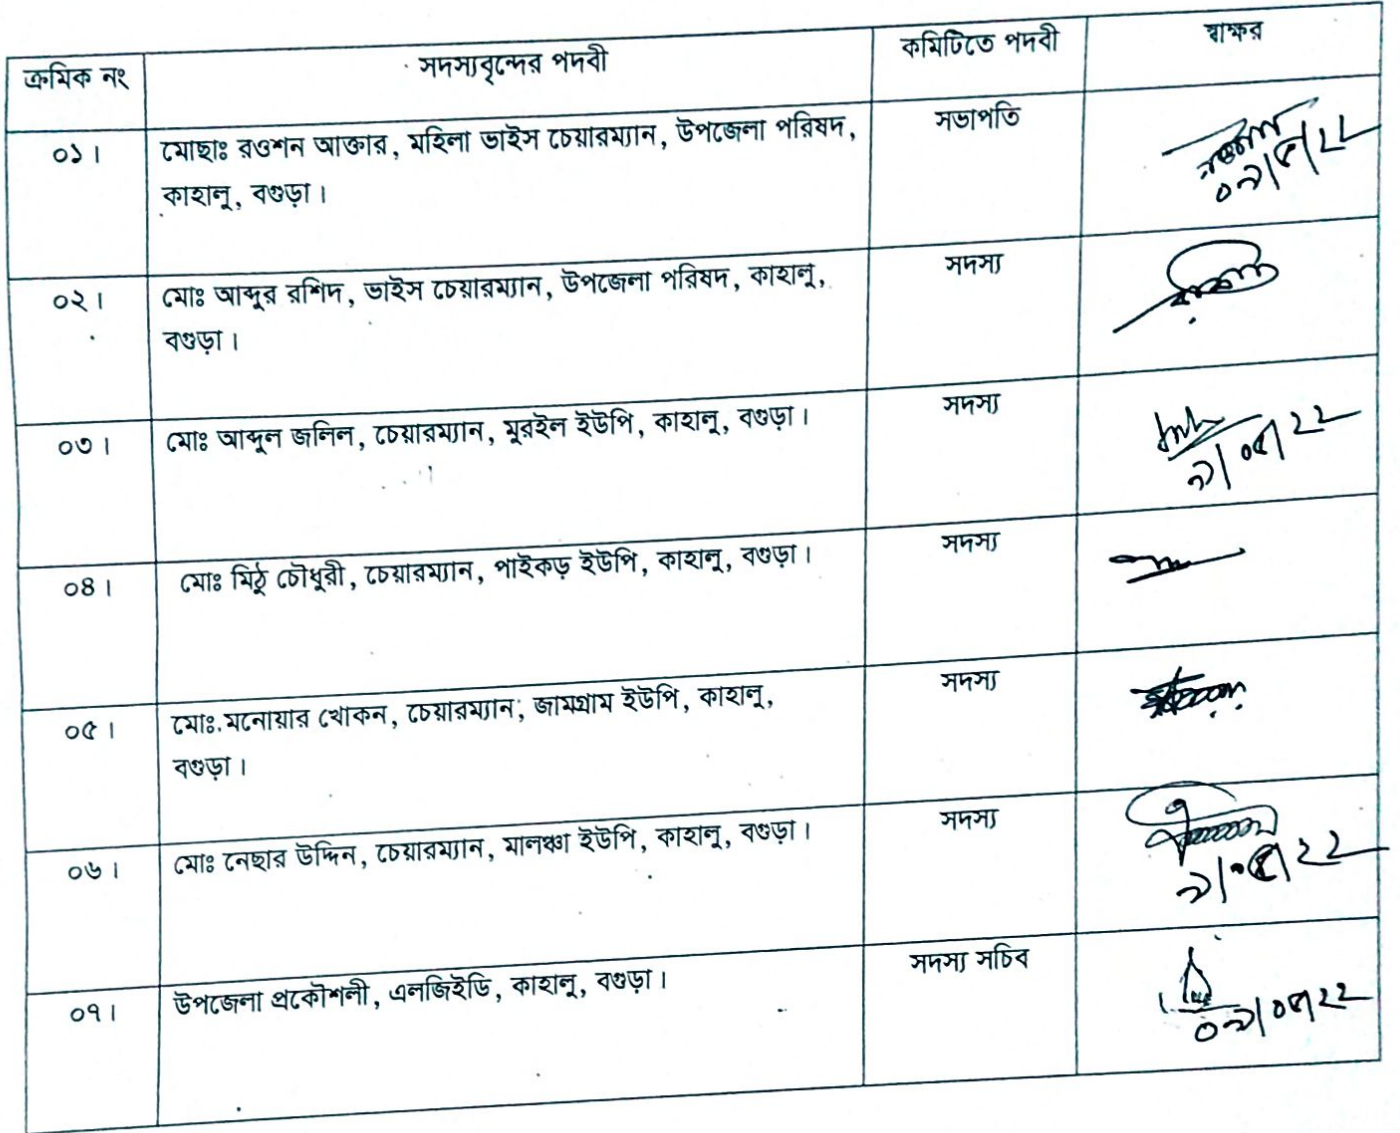 ক্রমিক নং সদস্যবৃন্দের পদবী কমিটিতে পদবী স্বাক্ষর
০১। মোছাঃ রওশন আক্তার, মহিলা ভাইস চেয়ারম্যান, উপজেলা পরিষদ, সভাপতি
কাহালু, বগুড়া।
০২। মোঃ আব্দুর রশিদ, ভাইস চেয়ারম্যান, উপজেলা পরিষদ, কাহালু, সদস্য
বগুড়া।
০৩। মোঃ আব্দুল জলিল, চেয়ারম্যান, মুরইল ইউপি, কাহালু, বগুড়া। সদস্য
০৪। মোঃ মিঠু চৌধুরী, চেয়ারম্যান, পাইকড় ইউপি, কাহালু, বগুড়া। সদস্য
০৫। মোঃ মনোয়ার খোকন, চেয়ারম্যান, জামগ্রাম ইউপি, কাহালু, সদস্য
বগুড়া।
০৬। মোঃ নেছার উদ্দিন, চেয়ারম্যান, মালঞ্চা ইউপি, কাহালু, বগুড়া। সদস্য
০৭। উপজেলা প্রকৌশলী, এলজিইডি, কাহালু, বগুড়া। সদস্য সচিব